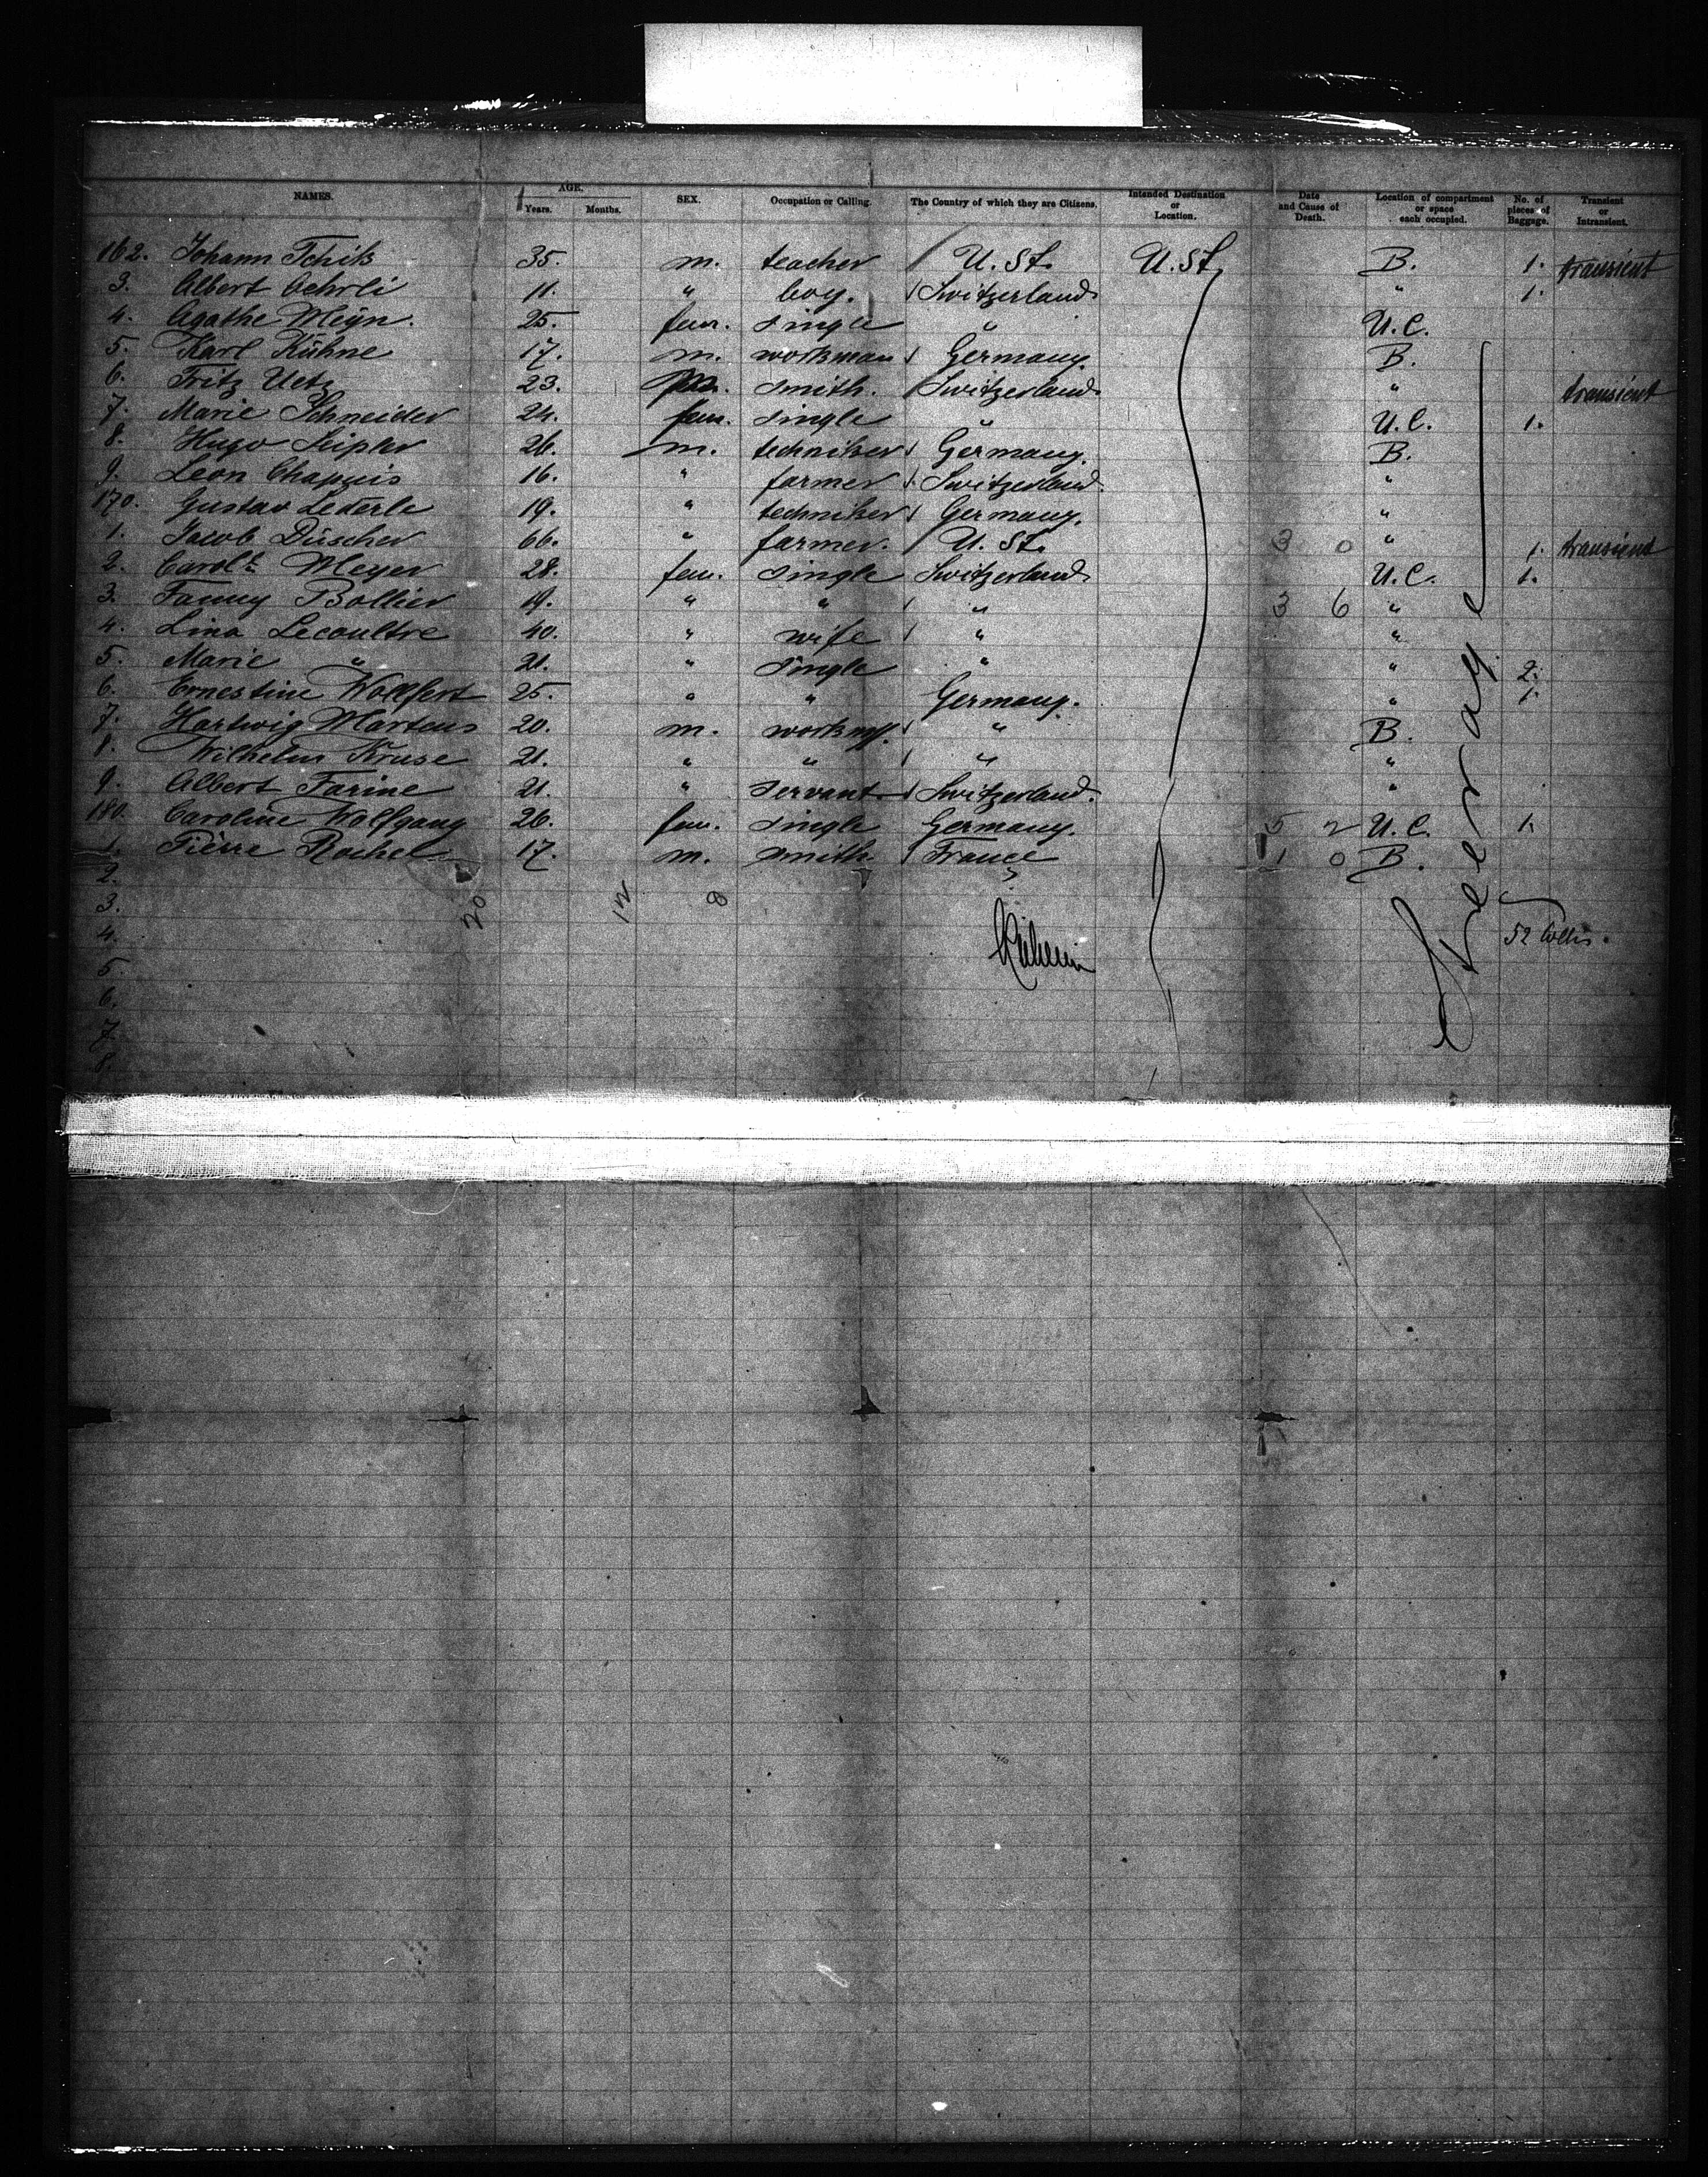 NAMES. AGE. Years. Months. SEX. Occupation or Calling. The Country of which they are Citizens. Intended Destination or Location. Date and Cause of Death. Location of compartment or space each occupied. No. of pieces of Baggage. Transient or Intransient.
162. Johann Tchik 35. m. teacher U. St. U. St. B. 1. transient
3. Albert Oehrli 11. " boy. Switzerland " 1.
4. Agathe Meyn. 25. fem. single " U.C.
5. Karl Kühne 17. m. workman Germany. B.
6. Fritz Uetz 23. m. smith. Switzerland " transient
7. Marie Schneider 24. fem. single " U.C. 1.
8. Hugo 26. m. techniker Germany. B.
9. Leon Chapuis 16. " farmer Switzerland. "
170. Gustav Lederle 19. " techniker Germany. "
1. Jacob Düscher 66. " farmer. U. St. 3 0 " 1. transient
2. Carol. Meyer 28. fem. single Switzerland U.C. 1.
3. Fanny Bollier 19. " " " 3 6 "
4. Lina Lecoultre 40. " wife " "
5. Marie " 21. " single " " 2.
6. Ernestine Wollfert 25. " " Germany. " 1.
7. Hartwig Martens 20. m. " B.
8. Wilhelm Kruse 21. " " " "
9. Albert Farine 21. " servant Switzerland. "
180. Caroline Wolfgang 26. fem. single Germany. 5 2 U.C. 1.
1. Pièrre Rochel 17. m. smith France 1 0 B.
2.
3. 20 12 8
4. 52 Collis.
5.
6.
7.
8.
Steerage